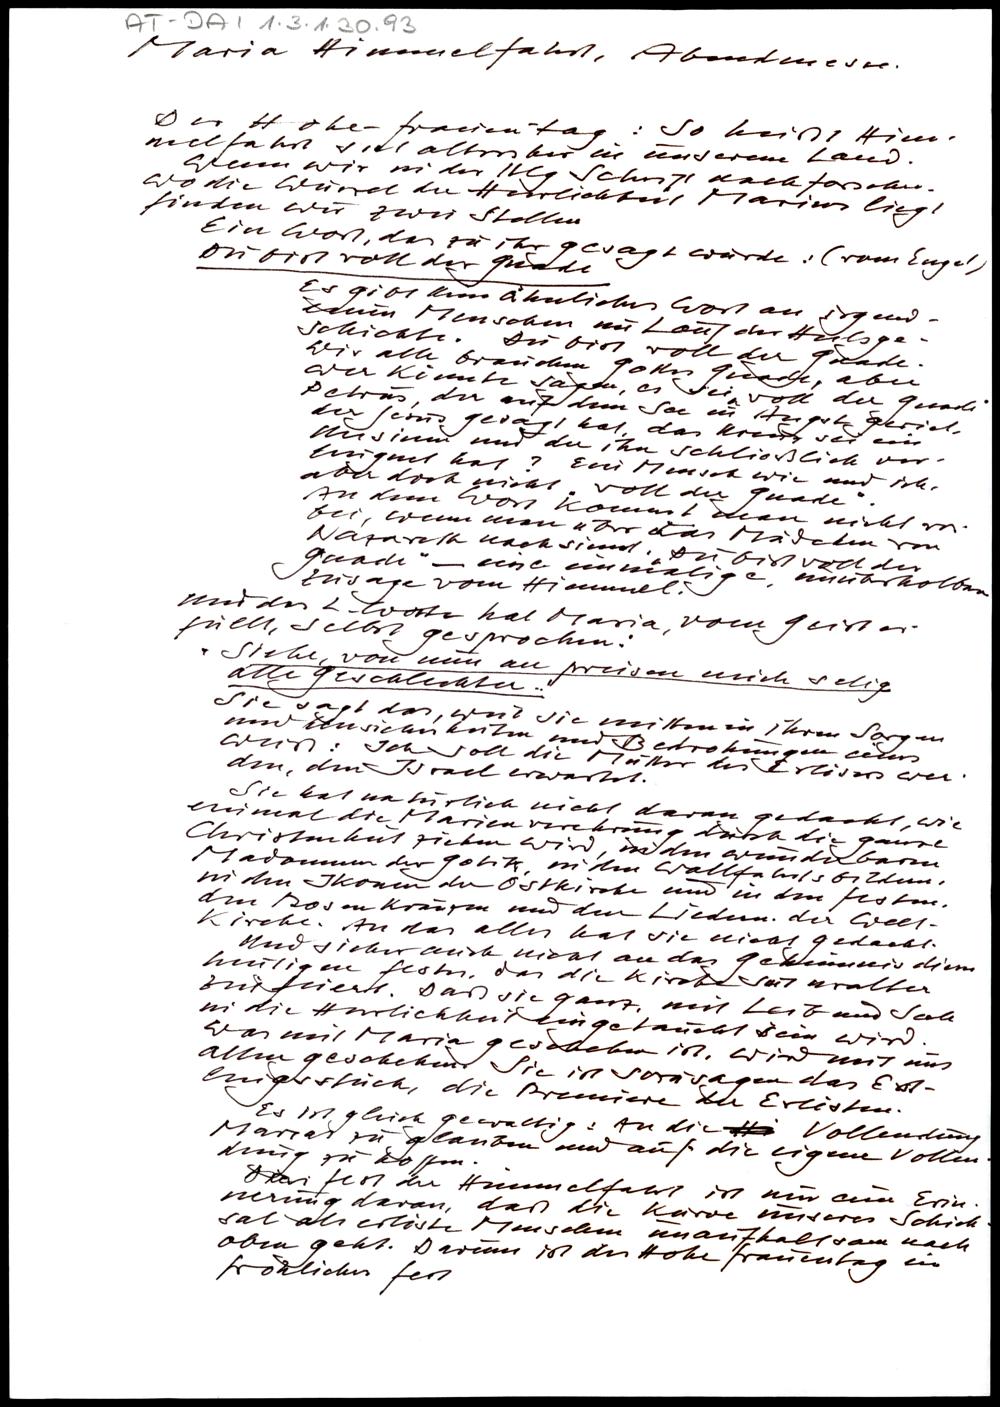 AT-DAI 1.3.1.30.93
Maria Himmelfahrt, Abendmesse.
Der Hohe-frauentag: So heißt Him-
melfahrt seit altersher in unserem Land.
Wenn wir in der Hlg Schrift nachforschen.
wo die Wurzel der Herrlichkeit Mariens liegt
finden wir zwei Stellen
Ein Wort, das zu ihr gesagt wurde: (vom Engel)
Du bist voll der Gnade
Es gibt kein ähnliches Wort an irgend-
einen Menschen im Lauf der Heilsge-
schichte. Du bist voll der Gnade.
Wir alle brauchen Gottes Gnade, aber
wer könnte sagen, er sei „voll der Gnade"
Petrus, der auf dem See in Angst geriet.
der Jesus gesagt hat, das Kreuz sei ein
Unsinn und der ihn schließlich ver-
leugnet hat? Ein Mensch wie und ich.
aber doch nicht „voll der Gnade".
An dem Wort kommt man nicht vor-
bei, wenn man über das Mädchen von
Nazareth nachsinnt. „Du bist voll der
Gnade" – eine einmalige, unüberholbare
Zusage vom Himmel.
Und das 2. Wort hat Maria, vom Geist er-
füllt, selbst gesprochen:
„Siehe, von nun an preisen mich selig
alle Geschlechter."
Sie sagt das, weil sie mitten in ihren Sorgen
und Unsicherheiten und Bedrohungen eines
weiß: Ich soll die Mutter des Erlösers wer-
den, den Israel erwartet.
Sie hat natürlich nicht daran gedacht, wie
einmal die Marienverehrung durch die ganze
Christenheit ziehen wird, in den wunderbaren
Madonnen der Gotik, in den Wallfahrtsbildern.
in den Ikonen der Ostkirche und in den festen.
den Rosenkränzen und den Liedern der Welt-
Kirche. An das alles hat sie nicht gedacht.
Und sicher auch nicht an das Geheimnis dieses
heutigen festes, das die Kirche seit uralter
Zeit feiert. Daß sie ganz, mit Leib und Seele
in die Herrlichkeit eingetaucht sein wird.
Was mit Maria geschehen ist, wird mit uns
allen geschehen. Sie ist sozusagen das Erst-
lingsstück, die Premiere der Erlösten.
Es ist gleich gewaltig: An die Vollendung
Mariens zu glauben und auf die eigene Vollen-
dung zu hoffen.
Das fest der Himmelfahrt ist nur eine Erin-
nerung daran, daß die Kurve unseres Schick-
sal als erlöste Menschen unaufhaltsam nach
oben geht. Darum ist der Hohe frauentag ein
fröhliches fest